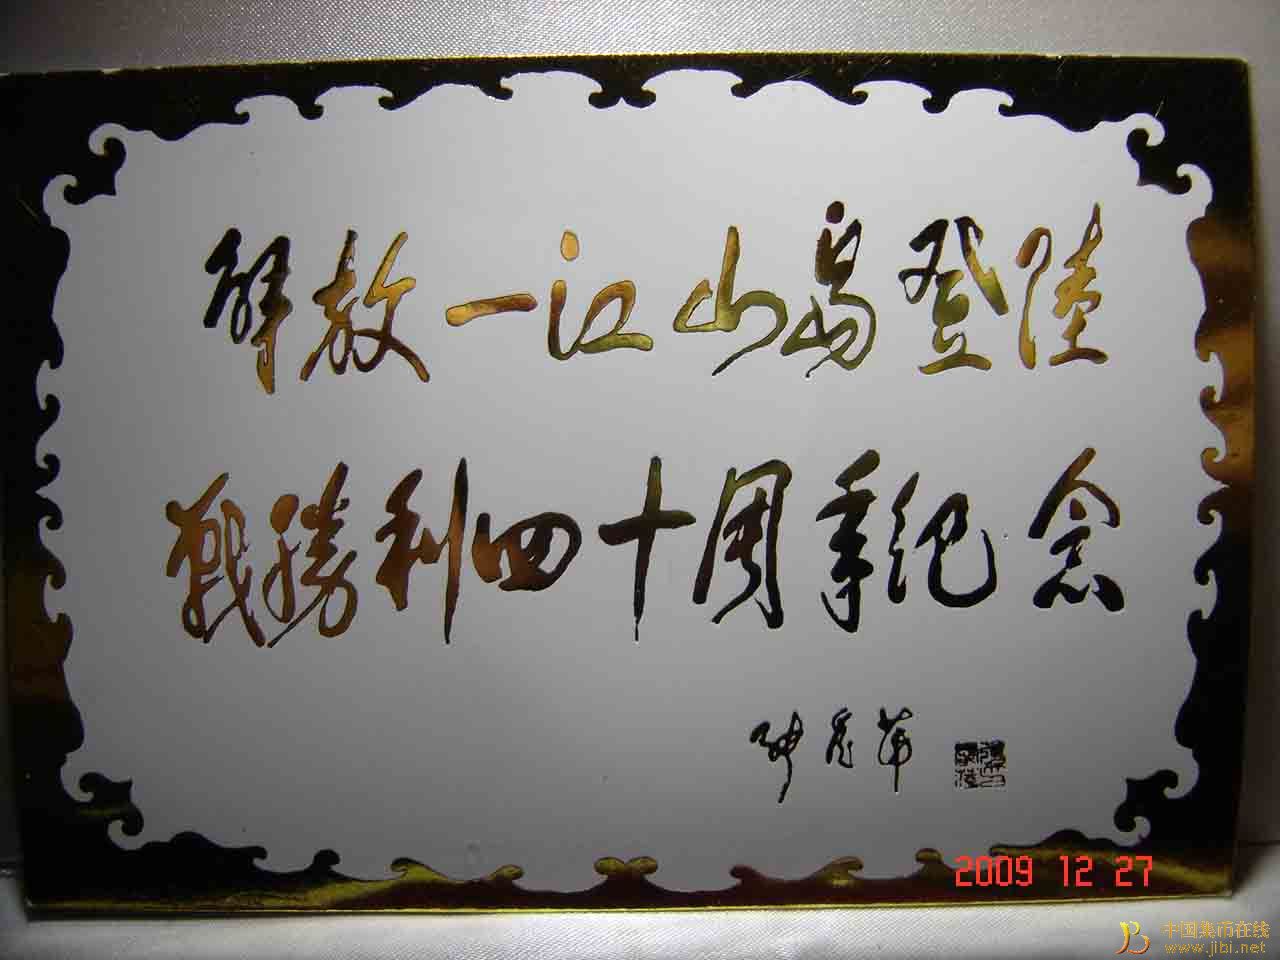 解放一江山島登陸
戰勝利四十周年纪念
2009 12 27
中国集币在线
www.jibi.net